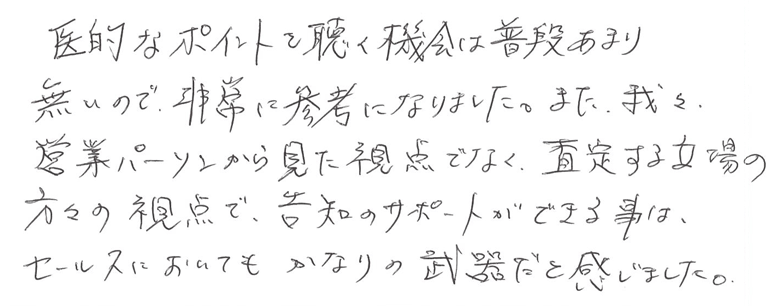 医的なポイントを聴く機会は普段あまり
無いので、非常に参考になりました。また、我々、
営業パーソンから見た視点でなく、査定する立場の
方々の視点で、告知のサポートができる事は、
セールスにおいてもかなりの武器だと感じました。